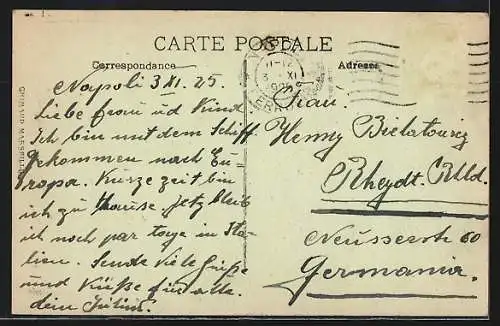 CARTE POSTALE
Correspondance
Adresse
Napoli 3 XI. 25.
Liebe frau ud Kind
Ich bin mit dem Schiff
gekommen nach Eu-
ropa. Kurze zeit bin
ich zu Hause. jetz bleib
ich noch par tage in Ita-
lien. Sende viele Grüße
und Küße für alle.
dein Julius.
Frau.
Henny Bielatowicz
Rheydt. Rhld.
Neusserstr 60
Germania.
3 XI